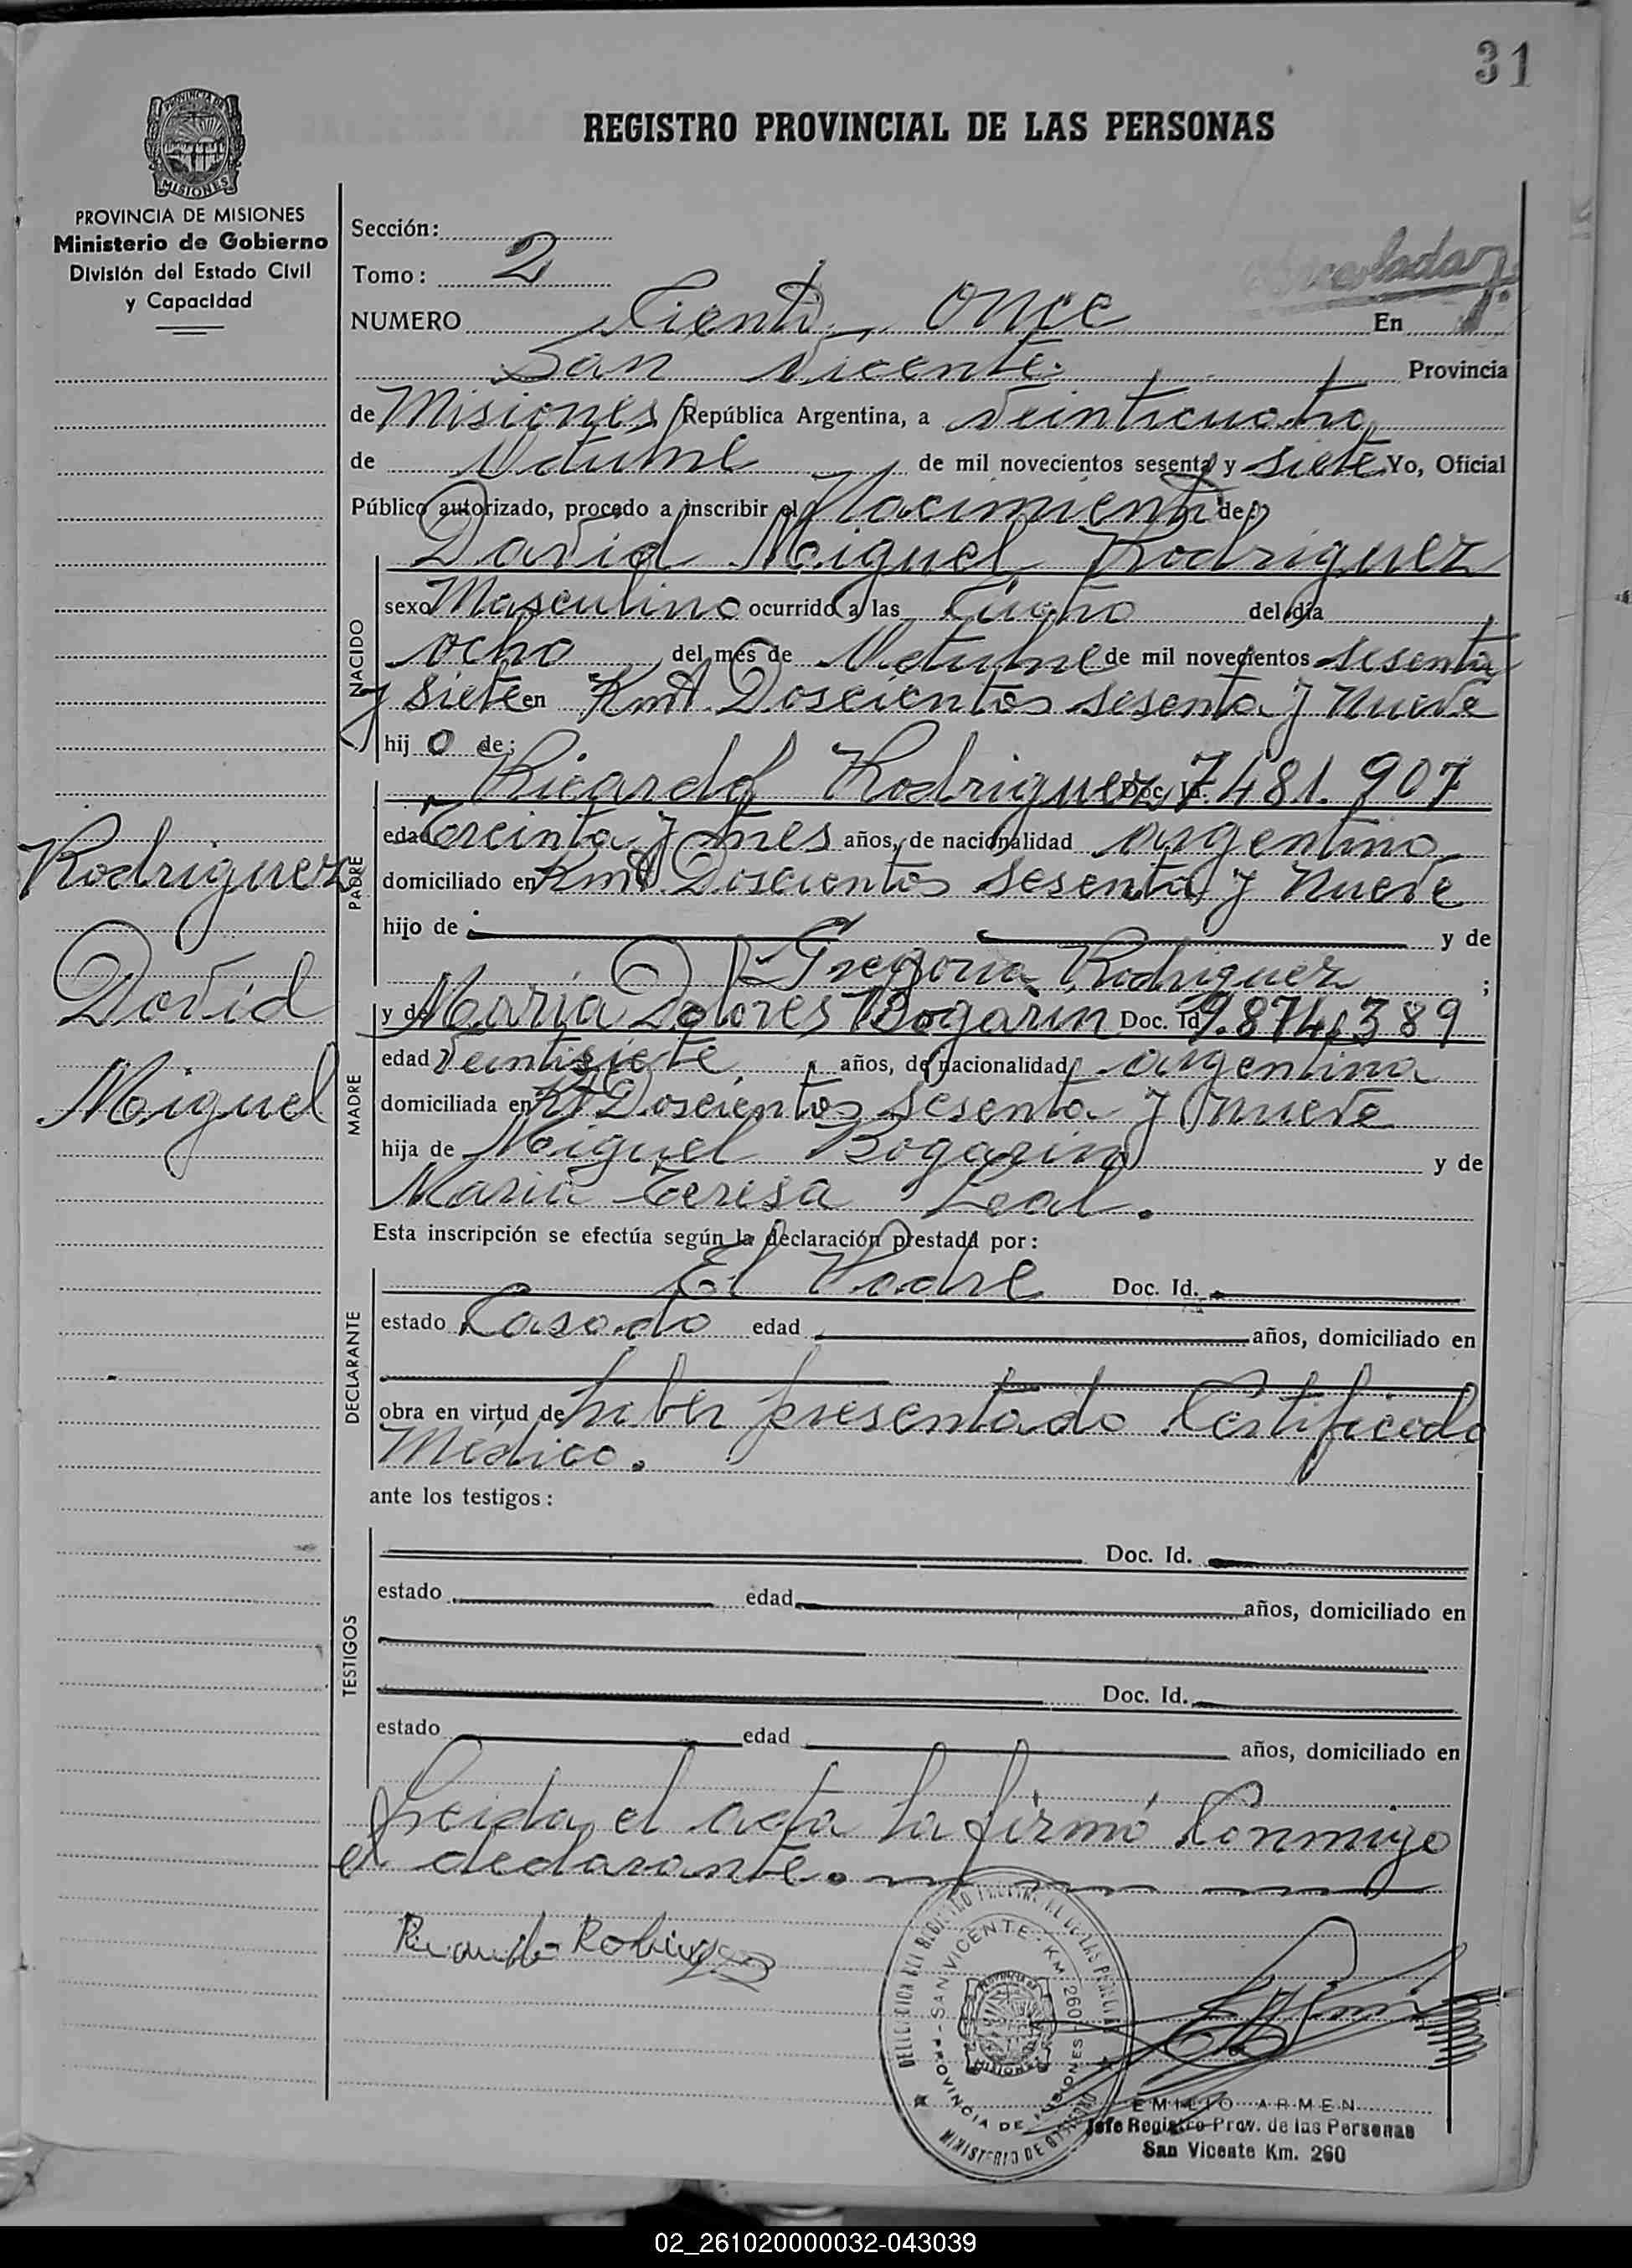 31
REGISTRO PROVINCIAL DE LAS PERSONAS
PROVINCIA DE
MISIONES
PROVINCIA DE MISIONES
Ministerio de Gobierno
División del Estado Civil
y Capacidad
Sección:
Tomo: 2
NUMERO Ciento once En
San Vicente. Provincia
de Misiones República Argentina, a veinticuatro
de Octubre de mil novecientos sesenta y siete Yo, Oficial
Público autorizado, procedo a inscribir el Nacimiento de:
David Miguel Rodriguez
NACIDO
sexo Masculino ocurrido a las cuatro del día
ocho del mes de Octubre de mil novecientos sesenta
y siete en Kmt. Doscientos sesenta y nueve
hijo de:
Ricardo Rodriguez Doc. Id. 7.481.907
PADRE
edad Treinta y tres años, de nacionalidad argentino
domiciliado en Kmt Doscientos sesenta y nueve
hijo de y de
Gregoria Rodriguez ;
Rodriguez
David
Miguel
y de Maria Dolores Bogarin Doc. Id 9.874.389
MADRE
edad Veintisiete años, de nacionalidad argentina
domiciliada en Kt Doscientos sesenta y nueve
hija de Miguel Bogarin y de
Maria Teresa Leal.
Esta inscripción se efectúa según la declaración prestada por:
DECLARANTE
El Padre Doc. Id.
estado Casado edad años, domiciliado en
obra en virtud de haber presentado Certificado
Médico.
ante los testigos:
TESTIGOS
Doc. Id.
estado edad años, domiciliado en
Doc. Id.
estado edad años, domiciliado en
Leida el acta la firmó Conmigo
el declarante.
DELEGACION DEL REGISTRO PROVINCIAL DE LAS PERSONAS
SAN VICENTE - KM. 260
PROVINCIA DE MISIONES
MINISTERIO DE GOBIERNO
EMILIO ARMEN
Jefe Registro Prov. de las Personas
San Vicente Km. 260
02_261020000032-043039